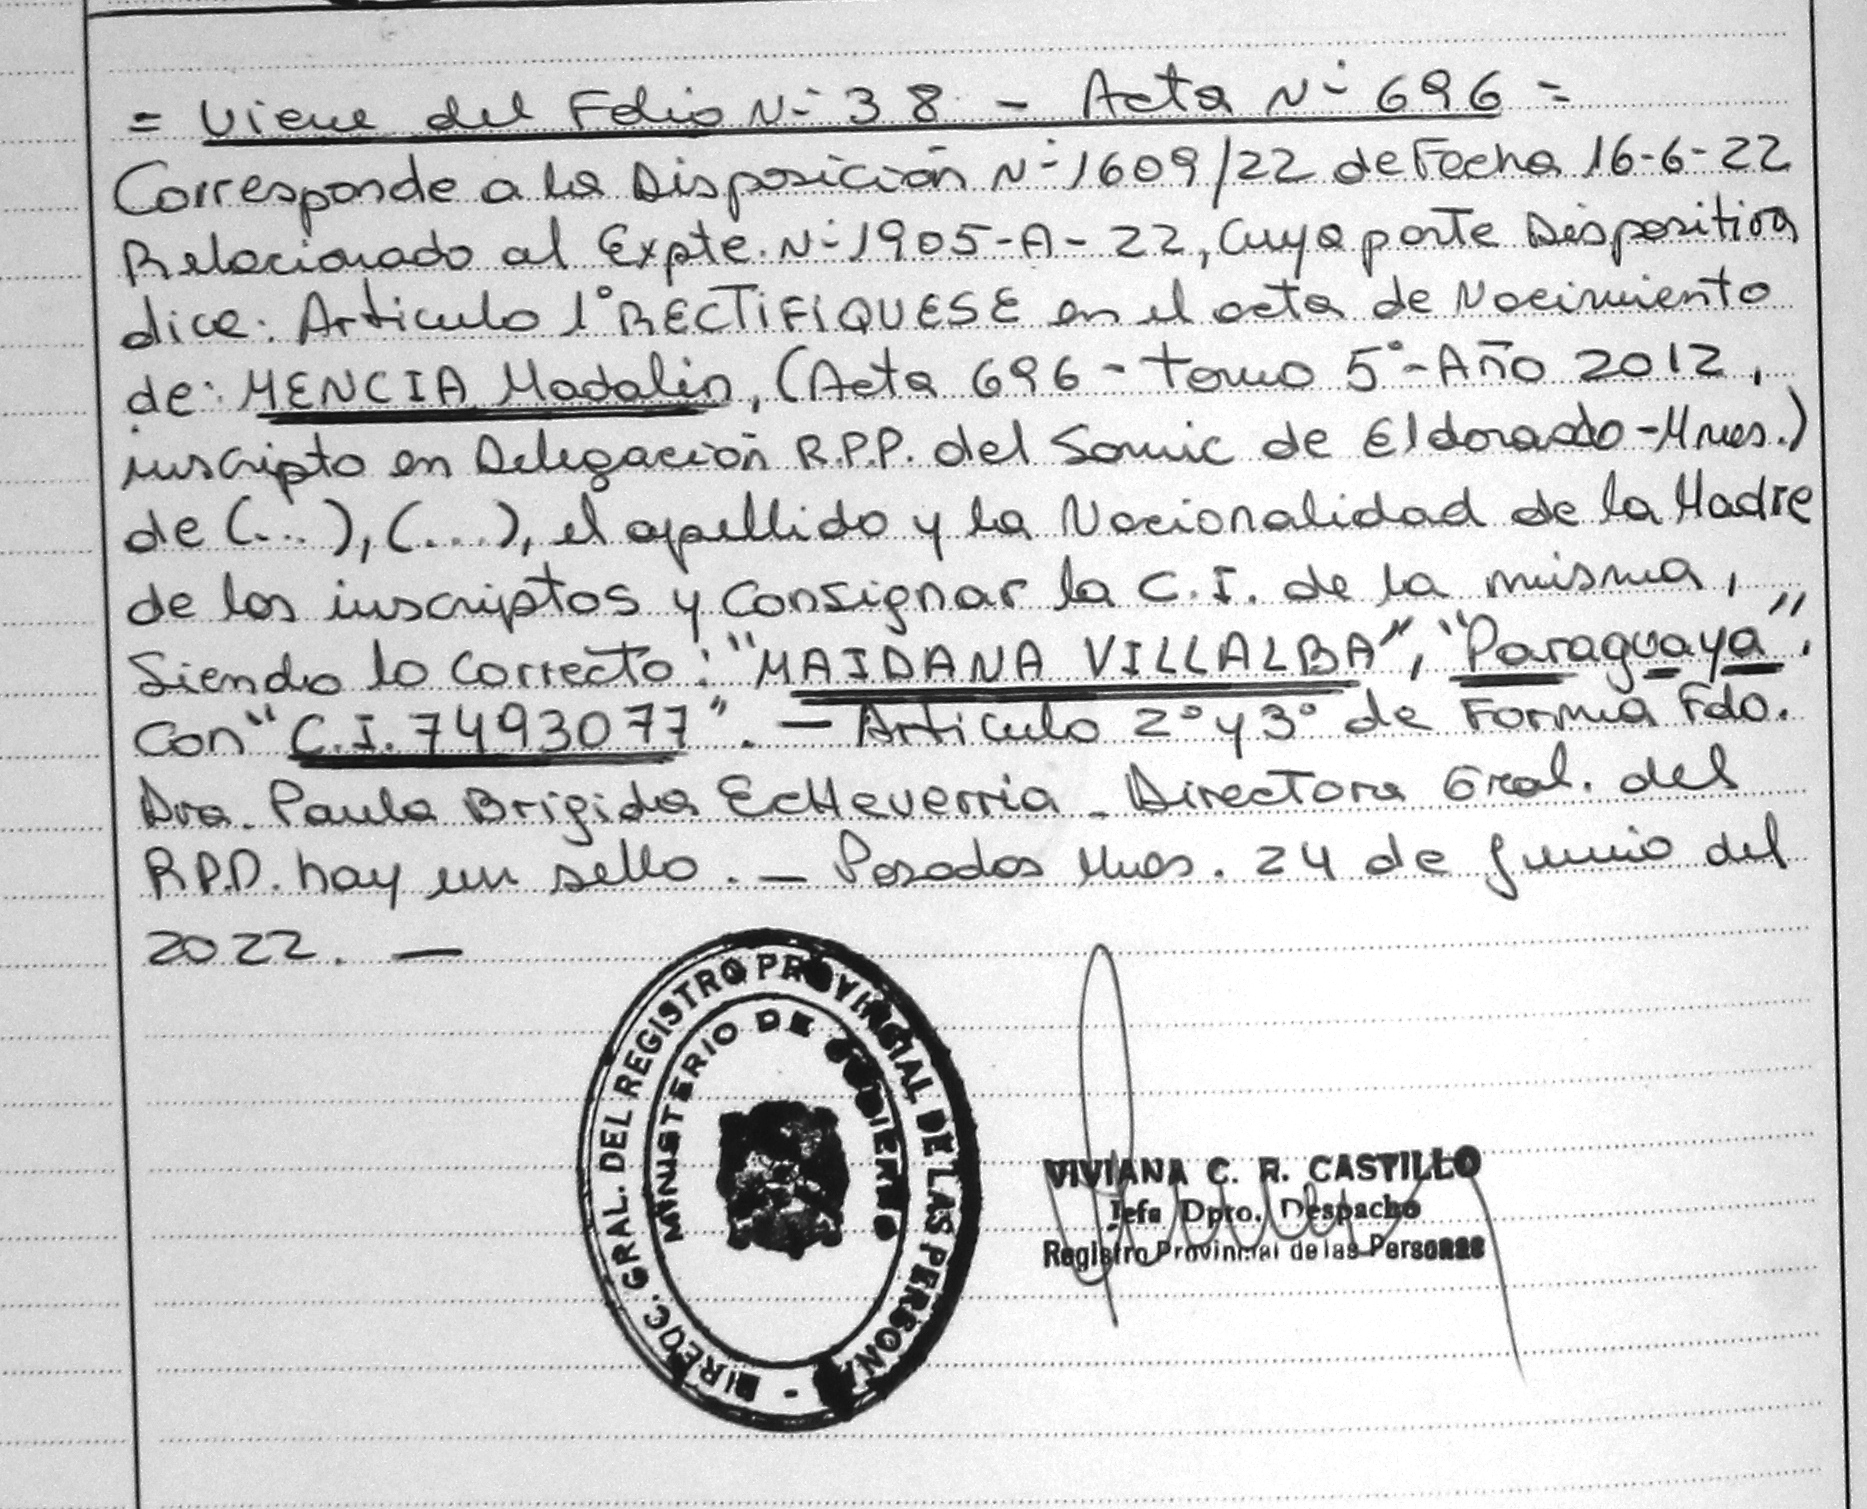 = Viene del Folio N- 38 - Acta N- 696 =
Corresponde a la Disposición N- 1609/22 de Fecha 16-6-22
Relacionado al Expte. N- 1905-A-22, Cuya parte Dispositiva
dice: Articulo 1° RECTIFIQUESE en el acta de Nacimiento
de: MENCIA Madalin, (Acta 696 - Tomo 5° - Año 2012,
inscripto en Delegación R.P.P. del Samic de Eldorado - Mnes.)
de (...), (...), el apellido y la Nacionalidad de la Madre
de los inscriptos y Consignar la C.I. de la misma,
Siendo lo Correcto: "MAIDANA VILLALBA", "Paraguaya".
Con "C.I. 7493077". - Articulo 2° y 3° de Forma Fdo.
Dra. Paula Brigida EcHeverria - Directora Gral. del
R.P.P. hay un sello. - Posadas Mnes. 24 de Junio del
2022. -
DIREOC. GRAL. DEL REGISTRO PROVINCIAL DE LAS PERSONAS -
MINISTERIO DE GOBIERNO
VIVIANA C. R. CASTILLO
Jefa Dpto. Despacho
Registro Provincial de las Personas